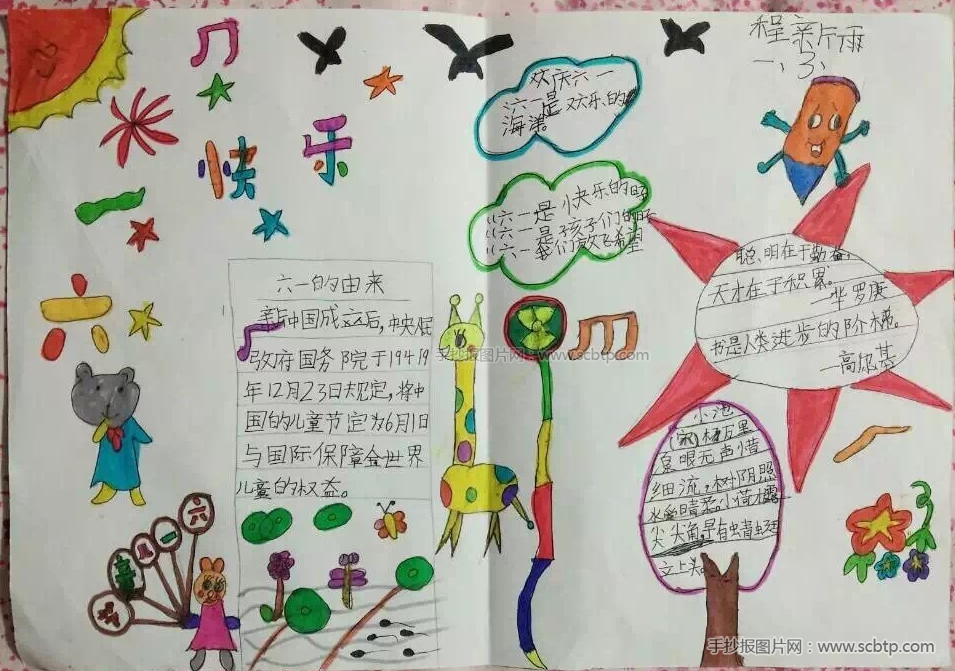 程新雨
一、3、
快乐
六一
欢庆六一
六一是欢乐的
海洋。
六一是快乐的
六一是孩子们的
六一我们放飞希望
六一的由来
新中国成立后,中央人民
政府国务院于1949
年12月23日规定,将中
国的儿童节定为6月1日
与国际保障全世界
儿童的权益。
手抄报图片网:www.scbtp.com
聪明在于勤奋,
天才在于积累。
—华罗庚
书是人类进步的阶梯。
—高尔基
小池
(宋)杨万里
泉眼无声惜
细流,树阴照
水爱晴柔。小荷才露
尖尖角,早有蜻蜓
立上头。
六
一
儿
手抄报图片网:www.scbtp.com